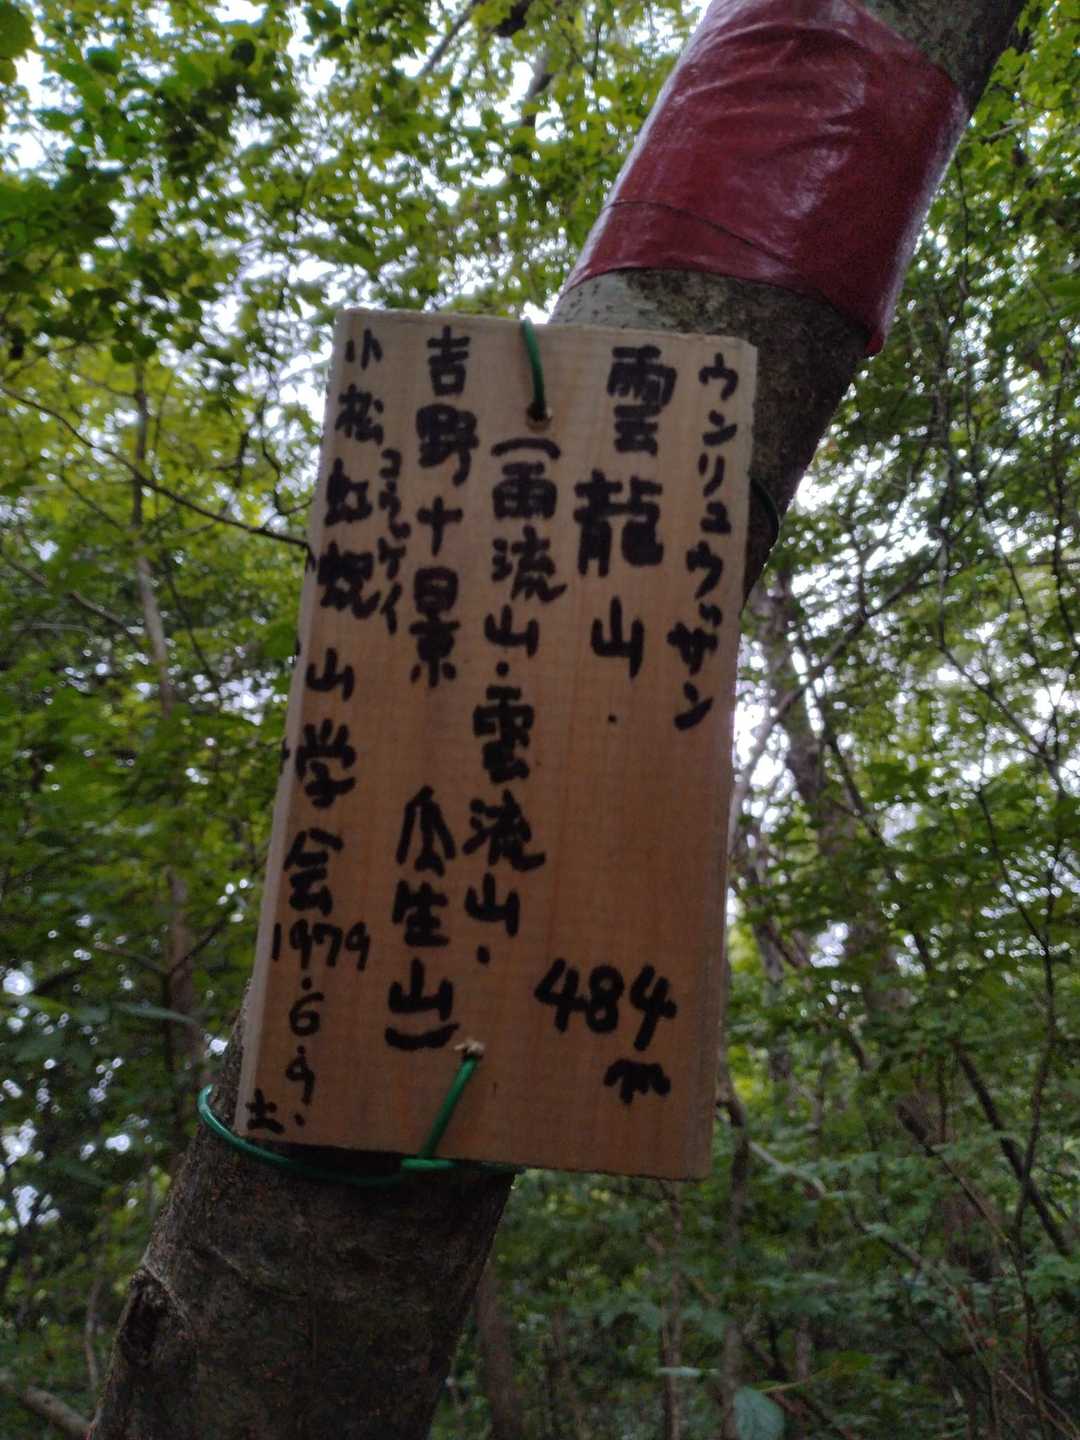 ウンリュウザン
雲龍山 484m
(雨流山・雲流山・
吉野十景 瓜生山)
コウケイ
小松虹 山学会 1979.6.9.土